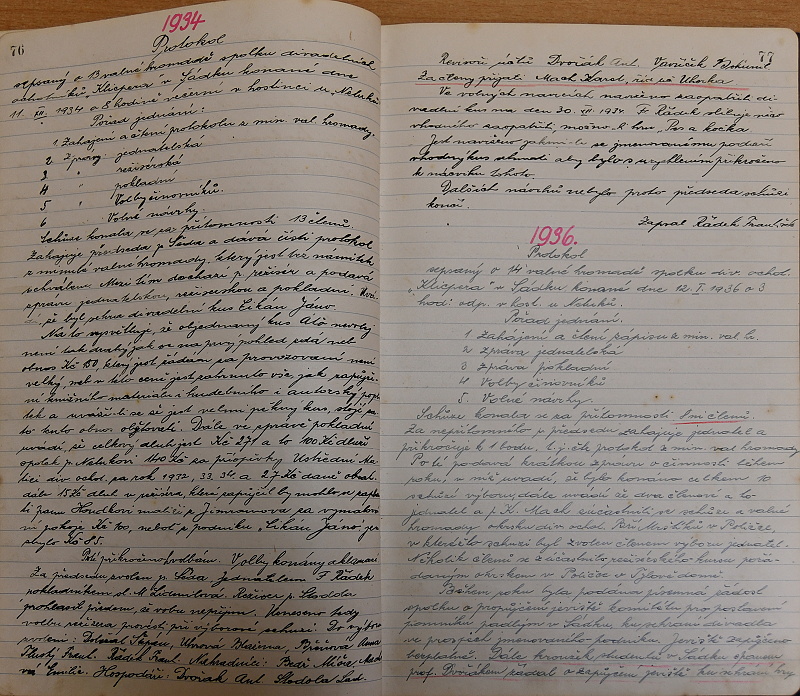 76
1934
Protokol
sepsaný o 13 valné hromadě spolku divadelních
ochotníků "Klicpera" v Sádku konané dne
11. XII. 1934 o 8 hodině večerní v hostinci u Neluků
Pořad jednání:
1 Zahájení a čtení protokolu z min. val. hromady.
2 Zprávy: jednatelská
3 " režisérská
4 " pokladní
5 " Volby činovníků.
6 " Volné návrhy
Schůze konala se za přítomnosti 13 členů.
Zahajuje předseda p. Sáda a dává čísti protokol
z minulé valné hromady, který jest bez námitek
schválen. Mezi tím dochází p. režisér a podává
zprávu jednatelskou, režisérskou a pokladní.
že byl sehrán divadelní kus Cikán Jáno.
Na to vysvětluje, že objednaný kus
není tak drahý jak se na prvý pohled zdá neb
obnos Kč 150, který jest žádán za provozování není
velký, neb v této ceně jest zahrnuto vše, jak zapůjče-
ní knižního materiálu i hudebního i autorský popla-
tek a uváží-li se že jest velmi pěkný kus, stojí za
to tento obnos obětovati. Dále ve zprávě pokladní
uvádí, že celkový dluh jest Kč 271 a to 100 Kč dluží
spolek p. Nelukovi 140 Kč za příspěvky Ústřední Ma-
tici div. ochot. za rok 1932, 33, 34 a 27 Kč daně obecní
dále 15 Kč dluh u režiséra,
panu Houdkovi malíři z Jimramova za vymalová-
ní pokoje Kč 100, neboť z podniku "Cikán Jáno"
zbylo Kč 85.
Poté přikročeno k volbám. Volby konány aklamací
Za předsedu zvolen p. Sáda jednatelem F. Rádek
pokladníkem sl. M. Ludmilová. Režisér p. Stodola
prohlásil předem, že volbu nepřijme. Usneseno tedy
volbu režiséra provésti při výborové schůzi. Do výboru
zvoleni: Doležal Štěpán, Unová Blažena, Anna
Tlustý Frant. Rádek Frant. Náhradníci:
Emilie. Hospodáři: Dvořák Ant. Stodola Lad.
77
Revisoři účtů Dvořák Ant. Vavříček Bohumil
Za členy přijati Mach Karel, Uhorka
Ve volných návrzích navrženo zaopatřiti di-
vadlení kus na den 30. XII. 1934. Fr. Rádek slibuje něco
vhodného zaopatřiti, možno že hru, Pes a kočka
Jest navrženo jakmile se jmenovanému podaří
vhodný kus sehnati aby bylo s urychlením přikročeno
k nácviku tohoto.
Dalších návrhů nebylo proto předseda schůzi
končí.
Zapsal Rádek Frant.
1936.
Protokol
sepsaný o 14 valné hromadě spolku div. ochot.
"Klicpera" v Sádku konané dne 12. I. 1936 o 3
hod. odp. v host. u Neluků.
Pořad jednání.
1 Zahájení a čtení zápisu z min. val. h.
2 zpráva jednatelská
3 zpráva pokladní
4 Volby činovníků
5. Volné návrhy.
Schůze konala se za přítomnosti 8mi členů.
Za nepřítomného p. předsedu zahajuje jednatel a
přikročuje k 1 bodu, t. j. čte protokol z min. val. hromady
Poté podává krátkou zprávu o činnosti během
roku, v níž uvádí, že bylo konáno celkem 10
schůzí výboru, dále uvádí že dva členové a to
jednatel a p. K. Mach súčastnili se schůze a valné
hromady okrsku div. ochot. Bří Mrštíků v Poličce,
v kteréžto schůzi byl zvolen členem výboru jednatel.
Několik členů se zúčastnilo režisérského kursu pořá-
daným okrskem v Poličce v Tylově domě.
Během roku byla podána písemná žádost
spolku o propůjčení jeviště komitétu pro postavení
pomníku padlých v Sádku, ku sehrání divadla
ve prospěch jmenovaného podniku. Jeviště zapůjčeno
bezplatně. Dále kroužek studentů v Sádku s panem
prof. Dvořákem žádal o zapůjčení jeviště ku sehrání hry